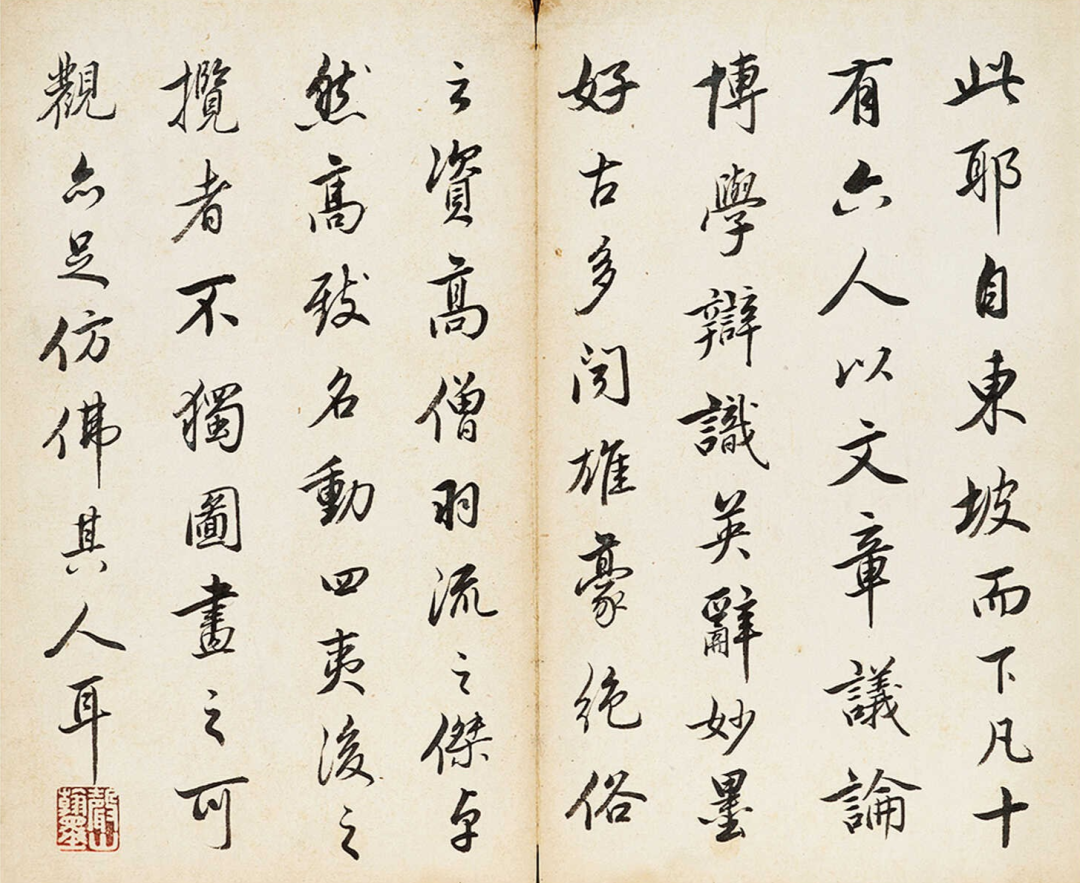 此耶自東坡而下凡十
有六人以文章議論
博學辯識英辭妙墨
好古多聞雄豪絕俗
之資高僧羽流之傑卓
然高致名動四夷後之
攬者不獨圖畫之可
觀亦足仿佛其人耳